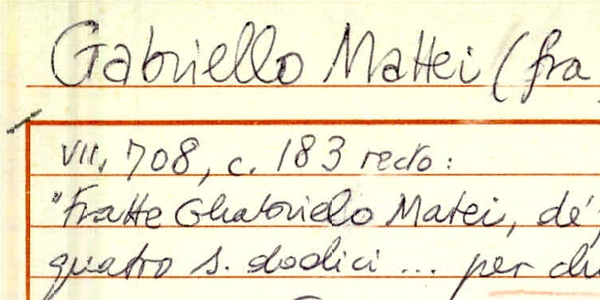 Gabriello Mattei (fra
VII, 708, c. 183 recto:
"Fratte Ghabrielo Matei, dé
quatro s. dodici ... per